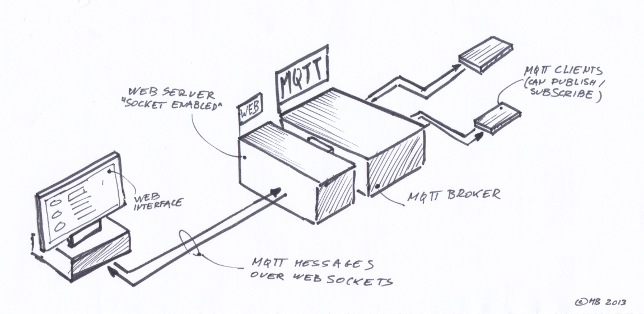 MQTT
WEB
WEB SERVER
"SOCKET ENABLED"
MQTT CLIENTS
(CAN PUBLISH /
SUBSCRIBE)
WEB
INTERFACE
MQTT BROKER
MQTT MESSAGES
OVER WEB SOCKETS
©MB 2013